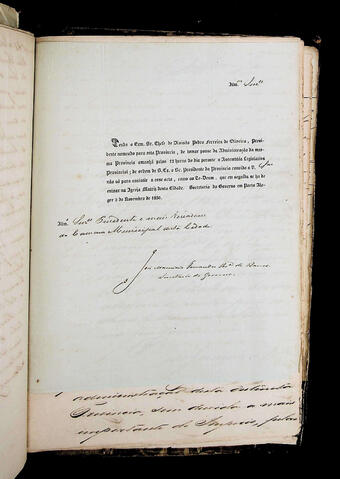 Illm.ᵒ Snr.ᵉˢ
Tendo o Exm. Sr. Chefe de Divisão Pedro Ferreira de Oliveira, Presi-
dente nomeado para esta Provincia, de tomar posse da Administração da mes-
ma Provincia amanhã pelas 12 horas do dia perante a Assembléa Legislativa
Provincial; de ordem de S. Ex. o Sr. Presidente da Provincia convido a V. Sas
não só para assistir a esse acto, como ao Te-Deum, que em seguida se ha de
entoar na Igreja Matriz desta Cidade. Secretaria do Governo em Porto Ale-
gre 3 de Novembro de 1850.
Illm. Snr.ᵉˢ Presidente e mais Vereadores
da Camara Municipal desta Cidade.
João Fernandes de Barros
Secretario do Governo.
administração desta
Provincia, sem duvida a mais
importante do Imperio, pelas